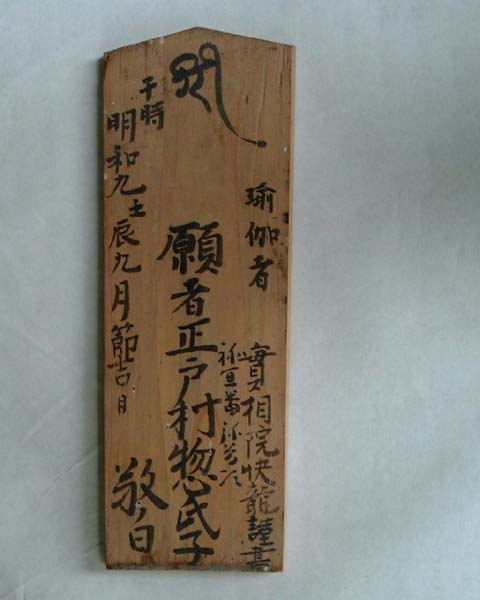 瑜伽者
實相院快龍謹書
願者正戸村惣氏子
于時
明和九壬辰九月節吉日
敬白